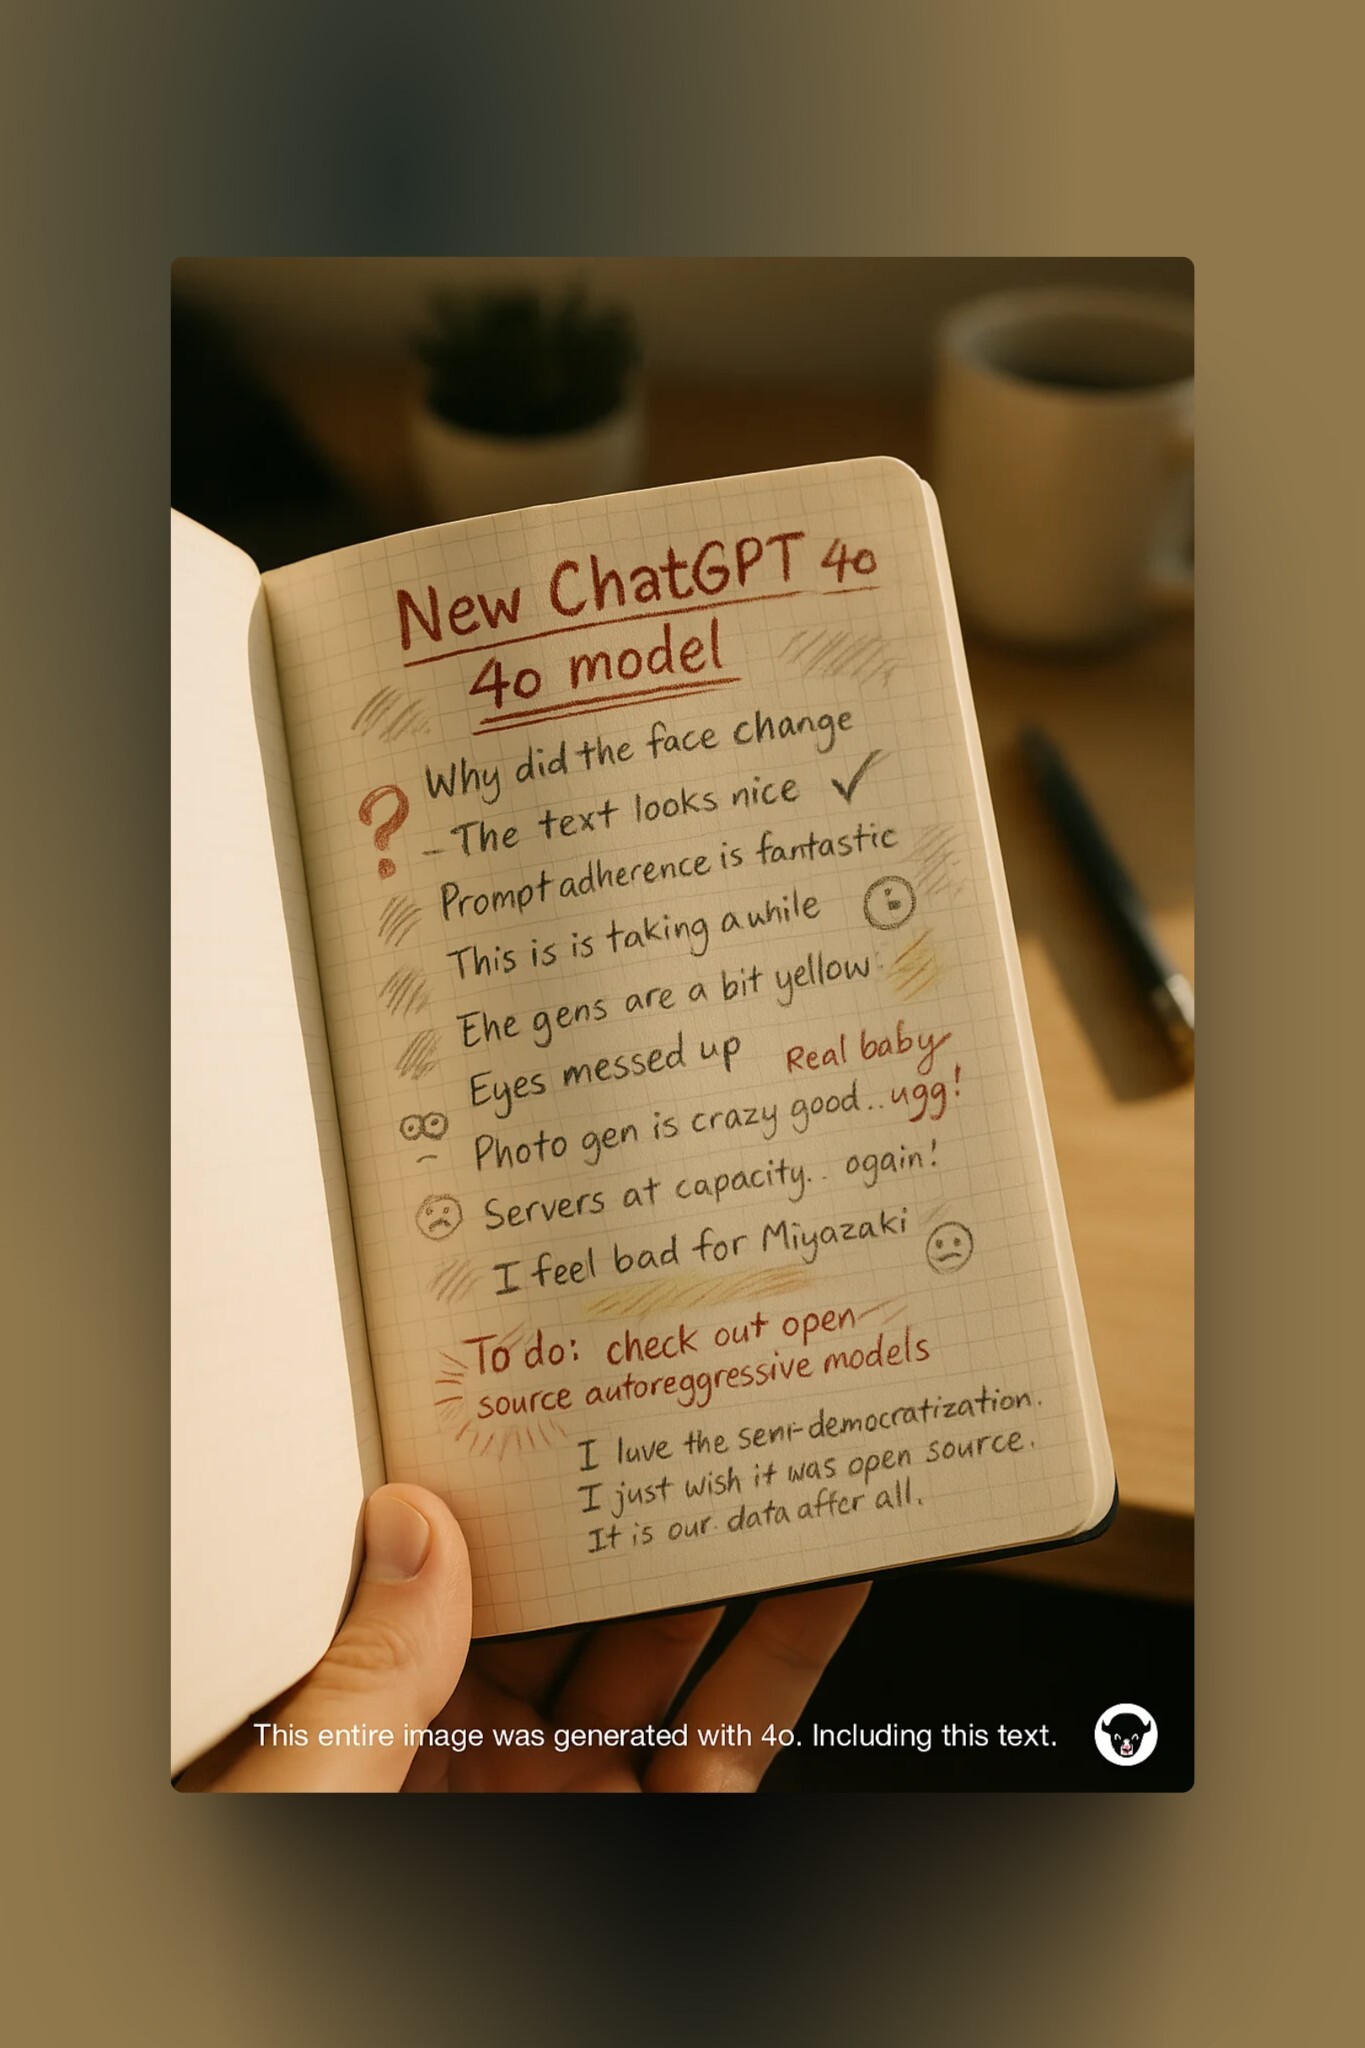 New ChatGPT 4o
4o model
? Why did the face change
– The text looks nice ✓
Prompt adherence is fantastic
This is is taking awhile
Ehe gens are a bit yellow
Eyes messed up
Real baby
Photo gen is crazy good.. ugg!
Servers at capacity.. ogain!
I feel bad for Miyazaki
To do: check out open
source autoreggressive models
I luve the seni-democratization.
I just wish it was open source.
It is our. data affer all.
This entire image was generated with 4o. Including this text.